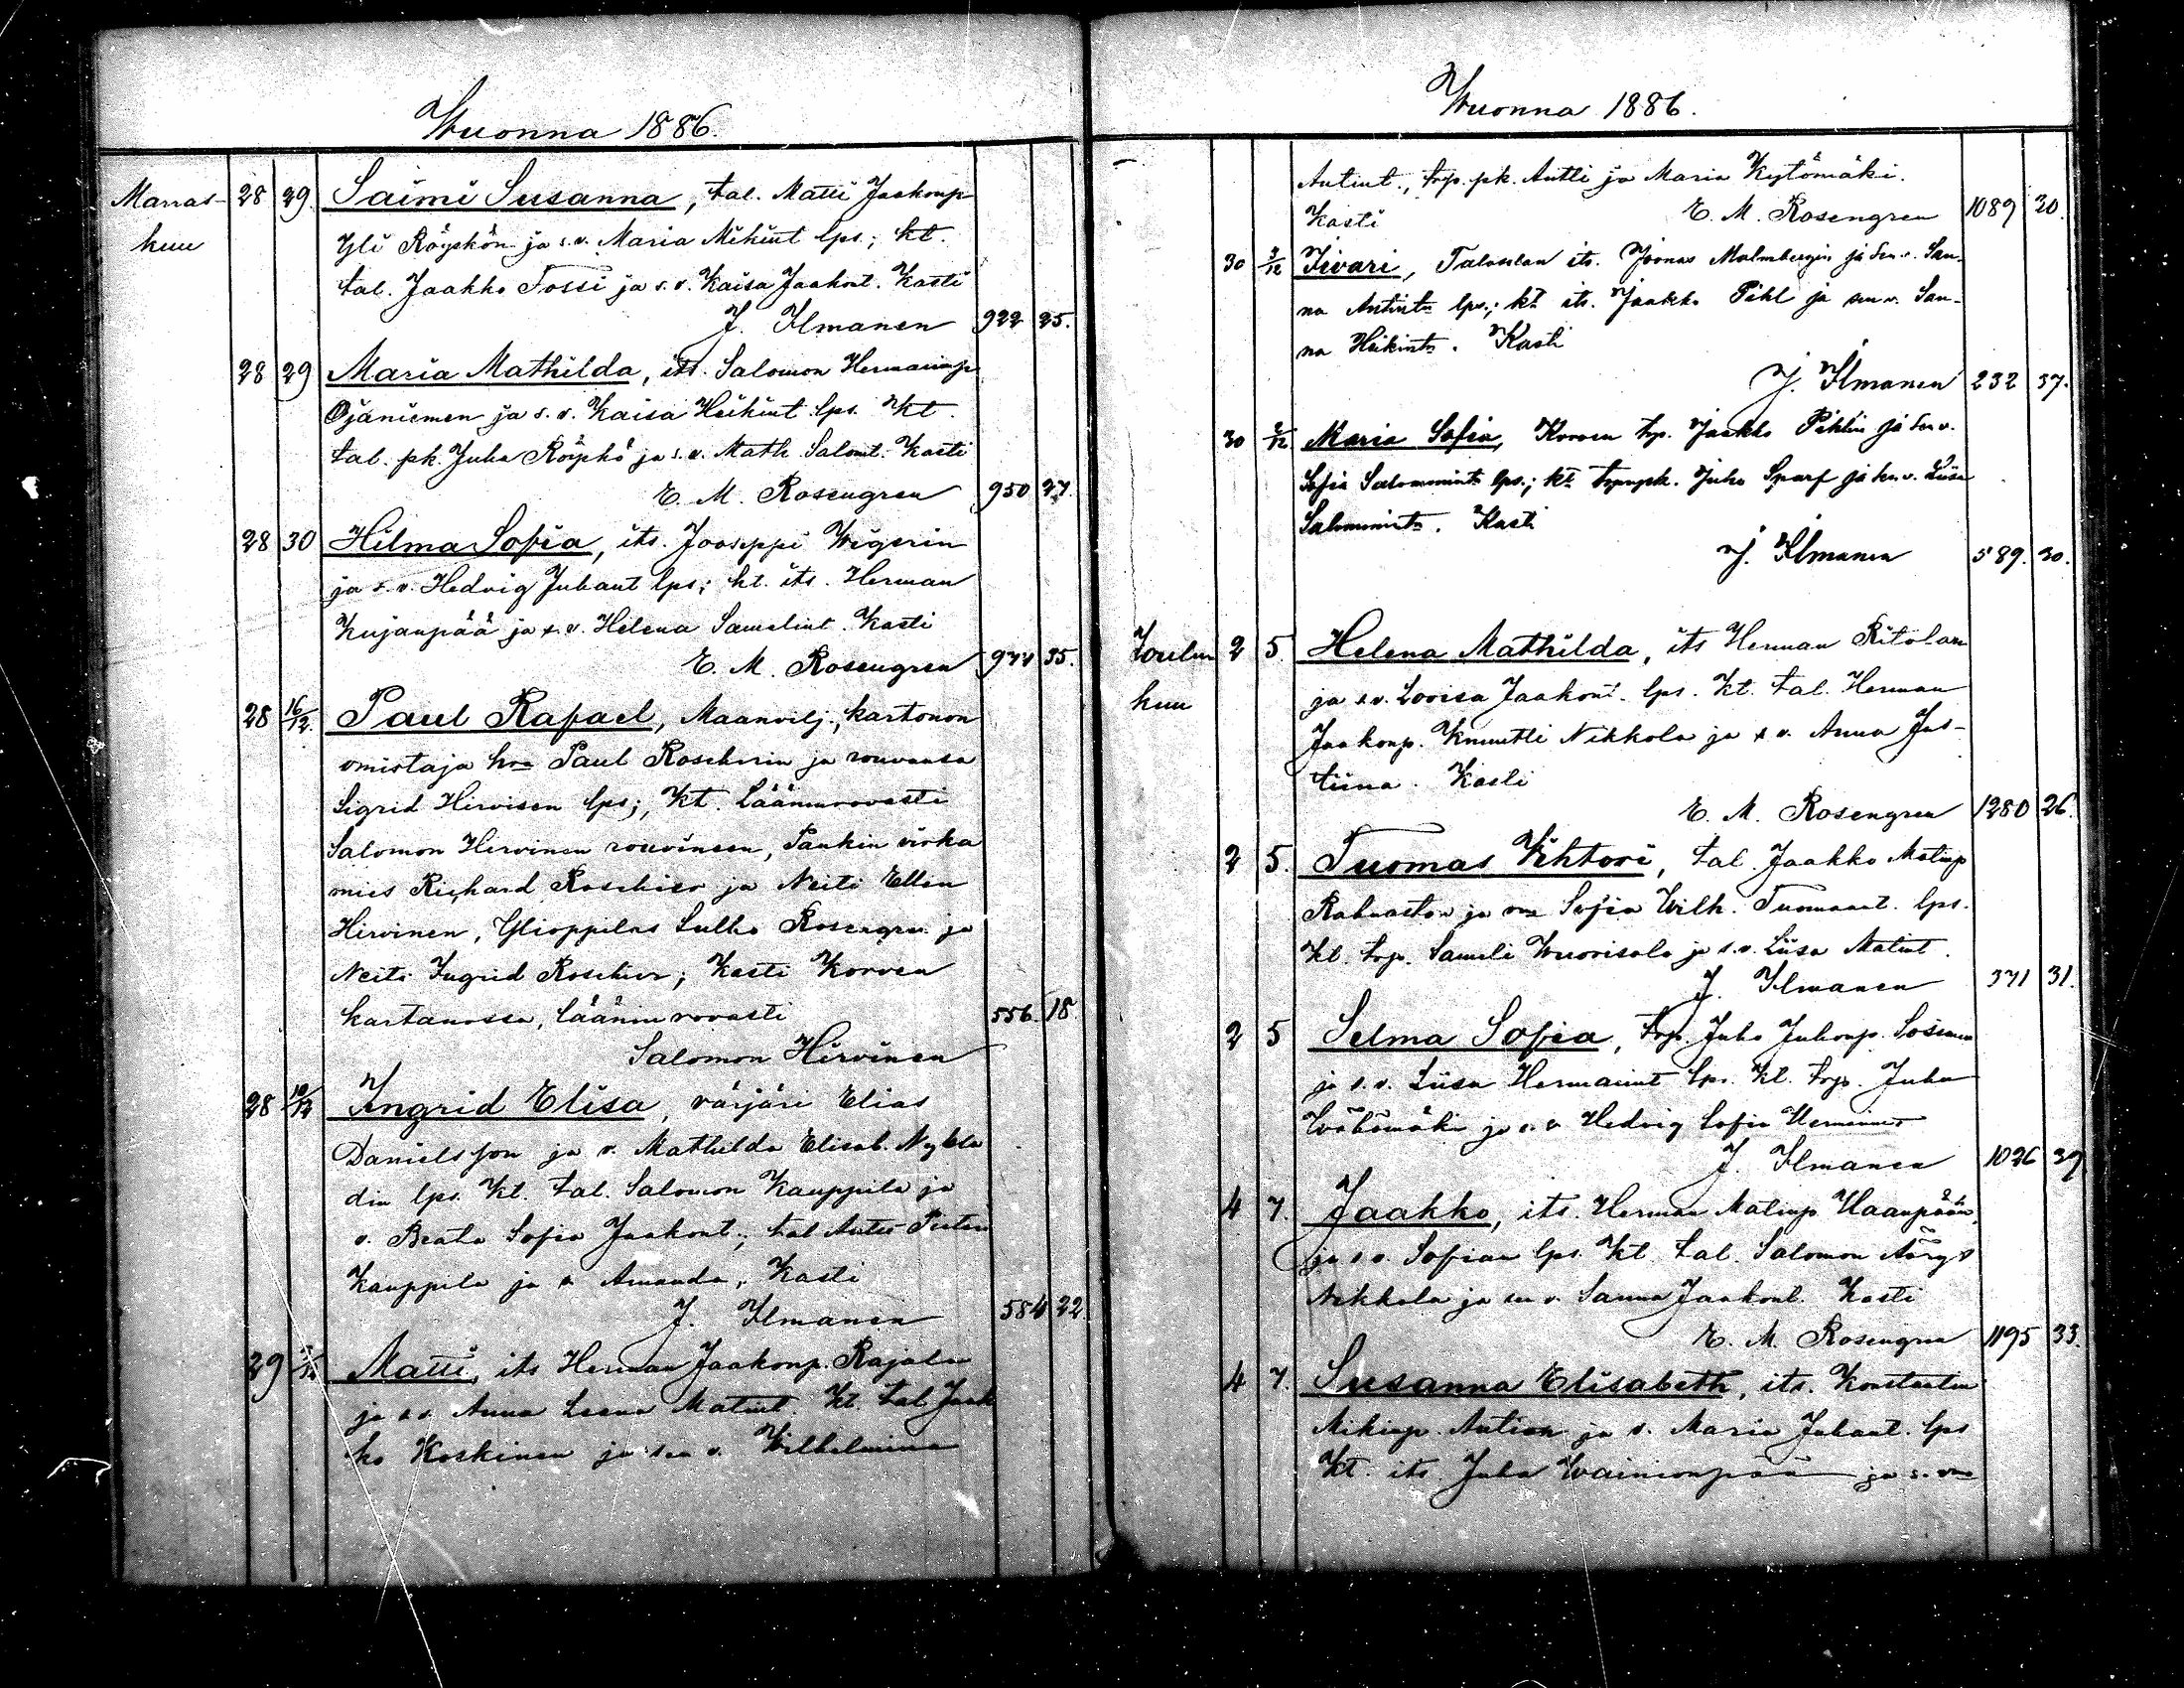 Wuonna 1886.
Marras- 28 29 Saimi Susanna, tal. Matti Jaakonp
kuu Yli Röyskön ja s.v. Maria Mikint lps; kt.
tal. Jaakko Tossi ja s.v. Kaisa Jaakont. Kasti
J. Ilmanen 922 25.
28 29 Maria Mathilda, its. Salomon Hermaninp
Ojaniemen ja s.v. Kaisa Heikint lps. Kt.
tal. pk. Juha Röyskö ja s.v. Math. Salomt. Kasti
E. M. Rosengren 950 27.
28 30 Hilma Sofia, its. Jooseppi Wigerin
ja s.v. Hedvig Juhant lps; kt. its. Herman
Kujanpää ja s.v. Helena Samelint. Kasti
E. M. Rosengren 944 35.
28 16/12. Paul Rafael, Maanvilj., kartanon
omistaja hra Paul Roschierin ja rouvansa
Sigrid Hirvisen lps; Kt. Lääninrovasti
Salomon Hirvinen rouvineen, Pankin virka
mies Richard Roschier ja Neiti Ellen
Hirvinen, Ylioppilas Sulho Rosengren ja
Neiti Ingrid Roschier; Kasti Korven
kartanossa, lääninrovasti 556. 18
Salomon Hirvinen
28 10/12 Ingrid Elisa, värjäri Elias
Danielsson ja v. Mathilda Elisab. Nyble
din lps. Kt. tal. Salomon Kauppila ja
v. Beata Sofia Jaakont.; tal Antti
Kauppila ja v. Amanda, Kasti
J. Ilmanen 584 22.
29 Matti, its Herman Jaakonp. Rajala
ja s.v. Anna Leena Matint. Kt. tal Jaak
ko Koskinen ja s.v. Wilhelmina
Wuonna 1886.
Antint., trp. pk. Antti ja Maria Kytömäki.
Kasti E. M. Rosengren 1089 20.
30 3/12 Iivari, Talaselan its. Joonas Malmbergin ja sen v. San-
na Antintr lps.; kt its. Jaakko Pihl ja sen v. San-
na Heikintr. Kasti
J. Ilmanen 232 37.
30 2/12 Maria Sofia, Korven trp. Jaakko Pihlin ja sen v.
Sofia Salomonintr lps.; kt Juho Sparf ja sen v. Liisa
Salomonintr. Kasti
J. Ilmanen 589. 30.
Joulu 2 5. Helena Mathilda, its Herman Ritolan
kuu ja s.v. Lovisa Jaakont. lps. Kt. tal. Herman
Jaakonp. Knuutti Nikkola ja s.v. Anna Jus-
tiina. Kasti
E. M. Rosengren 1280 26.
2 5. Tuomas Vihtori, tal. Jaakko Matinp
Rahnaston ja vn Sofia Wilh. Tuomaant. lps.
Kt. trp. Sameli Wuorisalo ja s.v. Liisa Matint.
J. Ilmanen 371 31.
2 5 Selma Sofia, trp. Juho Juhonp. Soinin
ja s.v. Liisa Hermanint lps. Kt. trp. Juha
Wähämäki ja s.v. Hedvig Sofia
J. Ilmanen 1026 39
4 7. Jaakko, its. Herman Matinp. Haanpään,
ja s.v. Sofian lps. Kt. tal. Salomon
Nikkola ja sen v. Sanna Jaakont. Kasti
E. M. Rosengren 1195 33.
4 7. Susanna Elisabeth, its. Konstantin
Mikinp. Aution ja v. Maria Juhant. lps
Kt. its. Juha Wainionpää ja s.